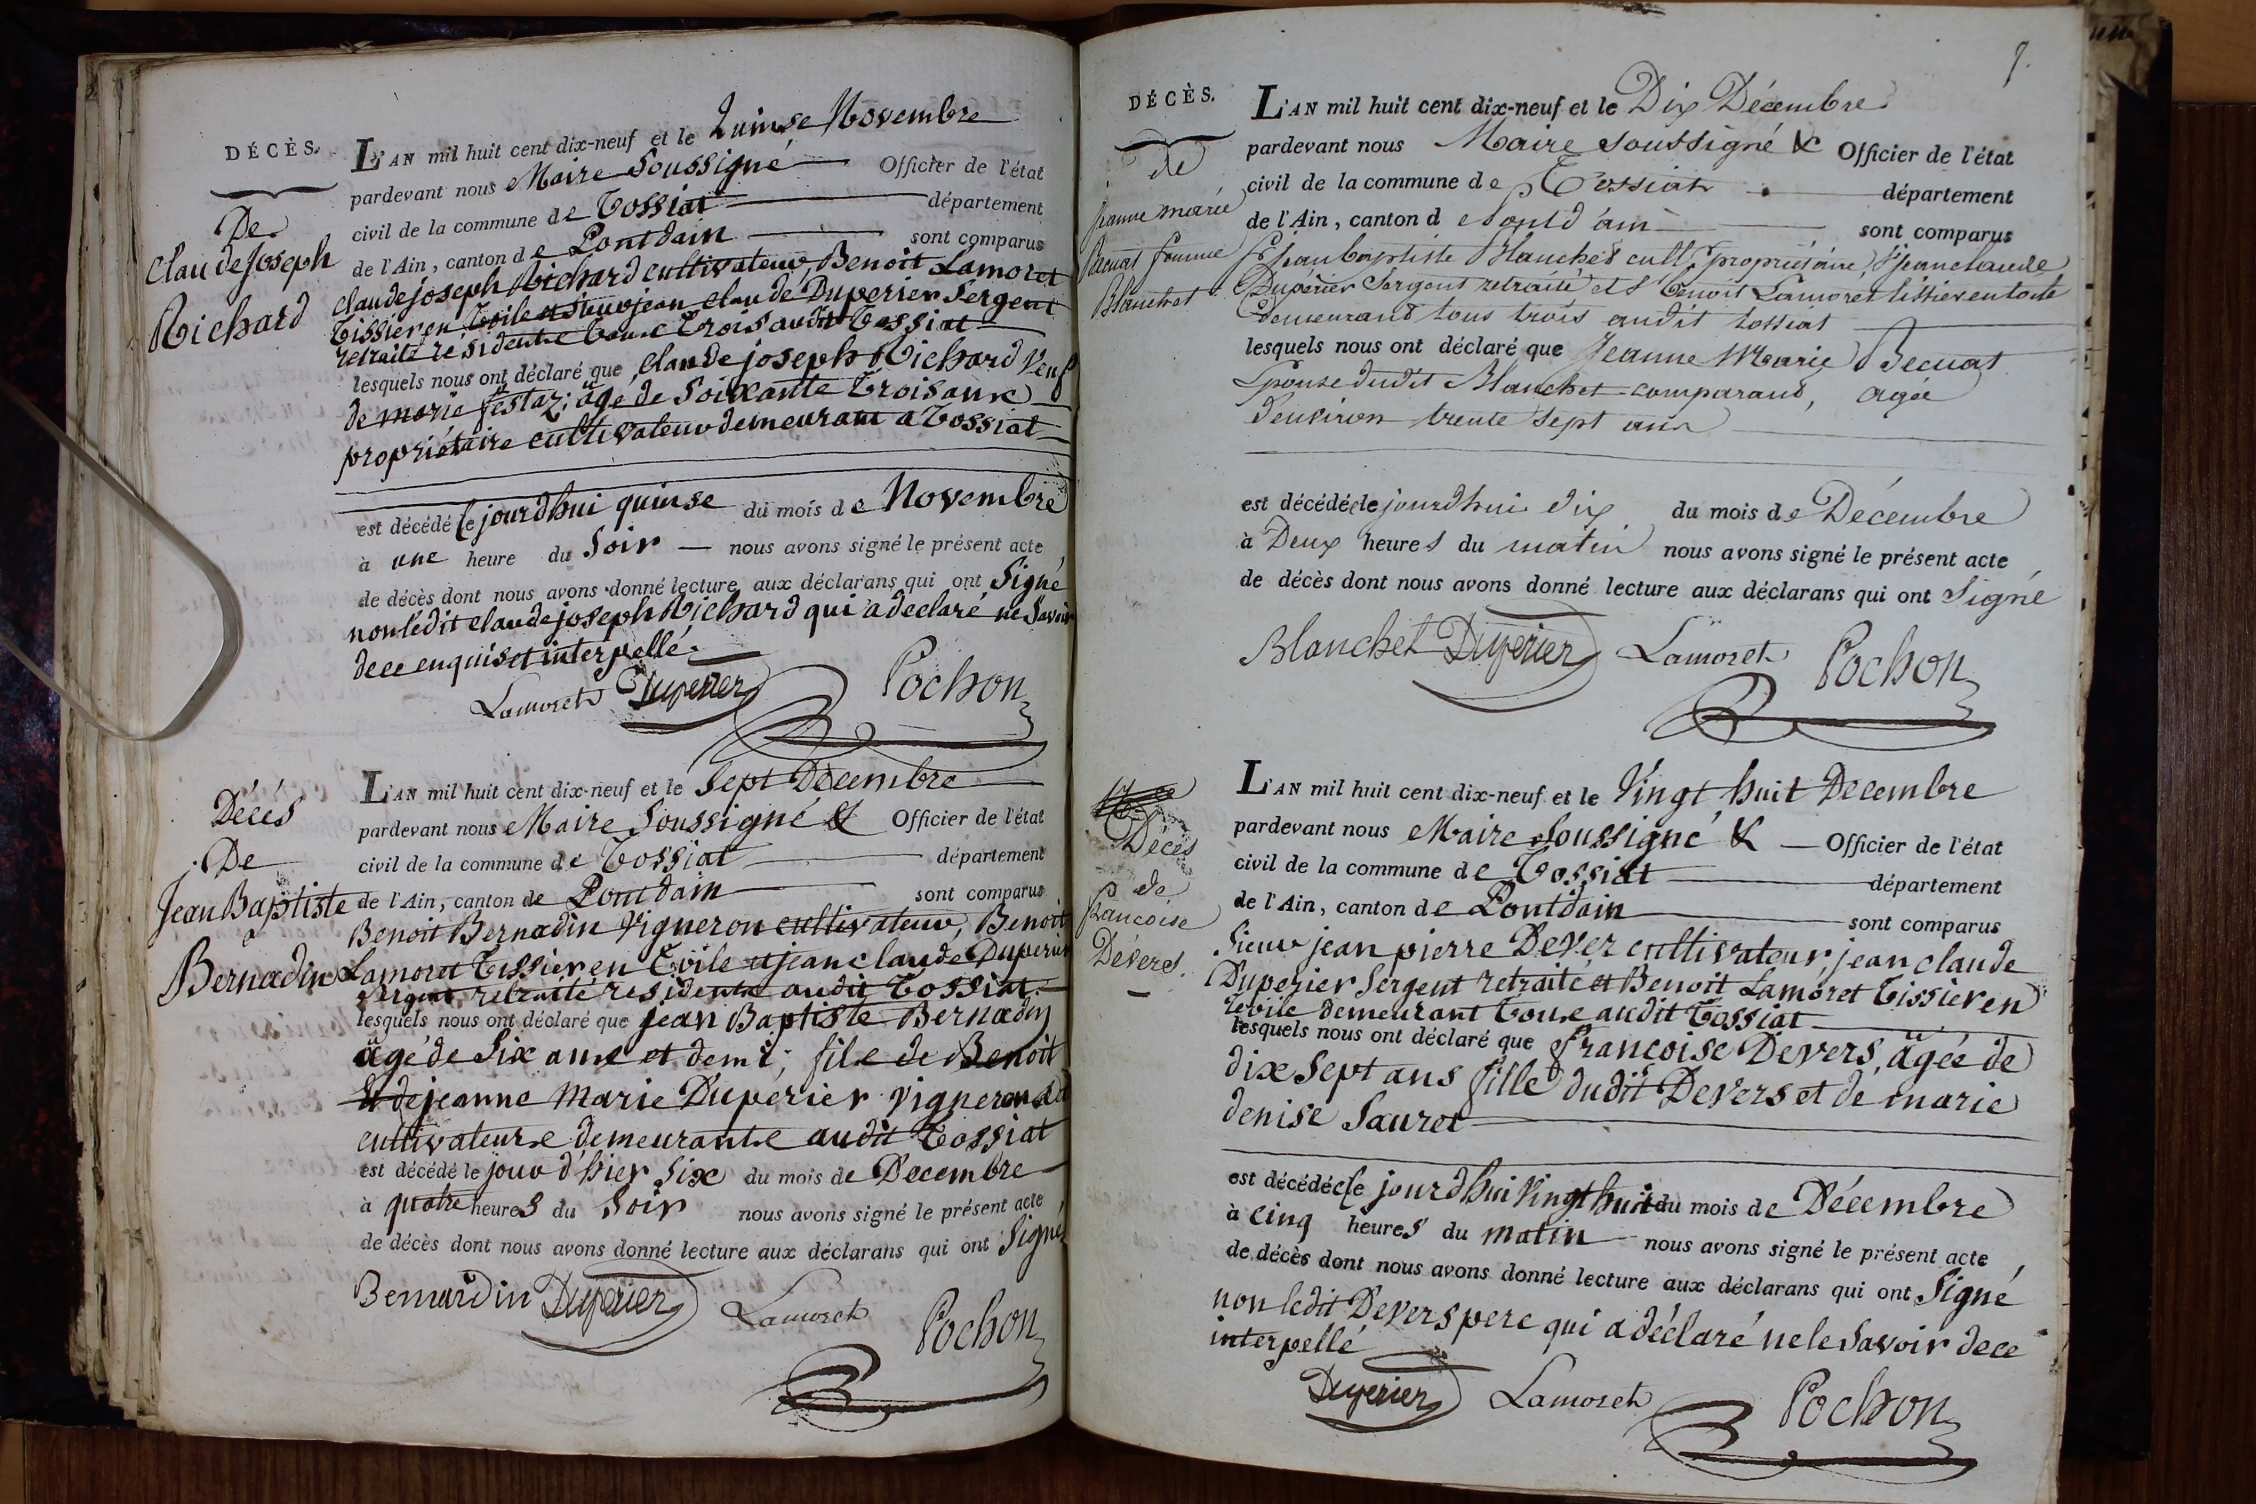 DÉCÈS.
De
Claude Joseph
Richard
L'AN mil huit cent dix-neuf et le Quinse Novembre
pardevant nous Maire Soussigné Officier de l'état
civil de la commune de Tossiat département
de l'Ain, canton de Pontdain sont comparus
claude joseph Richard cultivateur, Benoit Lamoret
Tissier en Toile et sieur jean claude Duperier Sergent
retraité résidents tous Trois audit Tossiat
lesquels nous ont déclaré que claude joseph Richard Veuf
de marie festaz; âgé de Soixante Trois ans
propriétaire cultivateur demeurant a Tossiat
est décédé le jourdhui quinse du mois de Novembre
à une heure du Soir nous avons signé le présent acte
de décès dont nous avons donné lecture aux déclarans qui ont Signé
non ledit claude joseph Richard qui a declaré ne Savoir
de ce enquis et interpellé.
Lamoret Duperier Pochon
Décés
De
Jean Baptiste
Bernadin
L'AN mil huit cent dix-neuf et le Sept Décembre
pardevant nous Maire Soussigné & Officier de l'état
civil de la commune de Tossiat département
de l'Ain, canton de Pontdain sont comparus
Benoit Bernadin Vigneron cultivateur, Benoit
Lamoret Tissier en Toile et jean claude Duperier
Sergent retraité residents audit Tossiat
lesquels nous ont déclaré que jean Baptiste Bernadin
âgé de Six ans et demi; fils de Benoit
et de jeanne Marie Dupérier vignerons
cultivateurs demeurants audit Tossiat
est décédé le jour d'hier Six du mois de Décembre
à quatre heures du Soir nous avons signé le présent acte
de décès dont nous avons donné lecture aux déclarans qui ont Signé
Bernardin Duperier Lamoret Pochon
7.
DÉCÈS.
de
jeanne marie
Becuat femme
Blanchet
L'AN mil huit cent dix-neuf et le Dix Décembre
pardevant nous Maire soussigné & Officier de l'état
civil de la commune de Tossiat département
de l'Ain, canton de Pont d'ain sont comparus
Sr jean baptiste Blanchet cultr propriétaire, Sr jean claude
Dupérier Sergent retraité et Sr Benoit Lamoret tissier en toile
demeurant tous trois audit tossiat
lesquels nous ont déclaré que Jeanne Marie Becuat
Epouse dudit Blanchet comparant, agée
d'environ trente sept ans
est décédée le jourdhui dix du mois de Décembre
à Deux heures du matin nous avons signé le présent acte
de décès dont nous avons donné lecture aux déclarans qui ont Signé
Blanchet Duperier Lamoret Pochon
Décés
de
francoise
Déverd.
L'AN mil huit cent dix-neuf et le Vingt huit Decembre
pardevant nous Maire Soussigné & Officier de l'état
civil de la commune de Tossiat département
de l'Ain, canton de Pontdain sont comparus
Sieur jean pierre Dever cultivateur, jean claude
Duperier Sergent retraité et Benoit Lamoret Tissier en
Toile demeurant Tous audit Tossiat
lesquels nous ont déclaré que francoise Devers, âgée de
dix Sept ans fille dudit Devers et de marie
denise Sauret
est décédée le jourdhui Vingt huit du mois de Décembre
à cinq heures du matin nous avons signé le présent acte
de décès dont nous avons donné lecture aux déclarans qui ont Signé
non ledit Devers pere qui a déclaré ne le Savoir de ce
interpellé
Duperier Lamoret Pochon